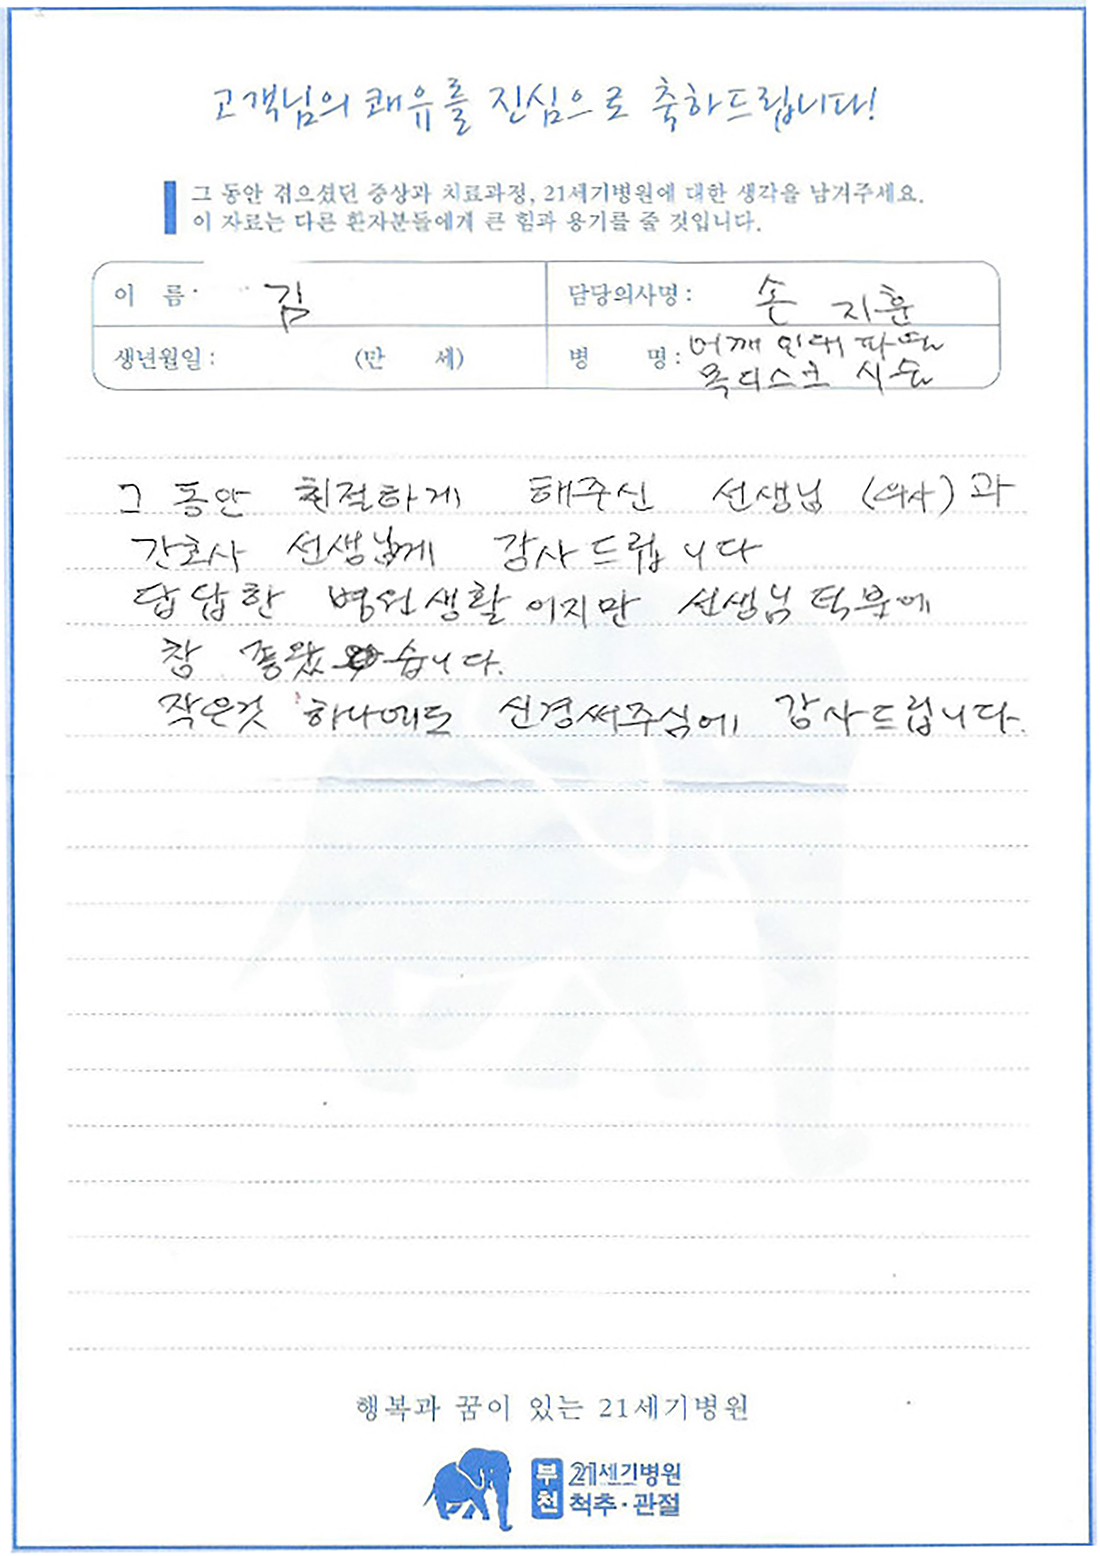 고객님의 쾌유를 진심으로 축하드립니다!
그 동안 겪으셨던 증상과 치료과정, 21세기병원에 대한 생각을 남겨주세요.
이 자료는 다른 환자분들에게 큰 힘과 용기를 줄 것입니다.
이 름: 김
담당의사명: 손 지훈
생년월일: (만 세)
병 명: 어깨 인대 파열
목디스크 시술
그 동안 친절하게 해주신 선생님 (의사)과
간호사 선생님께 감사드립니다
답답한 병원생활이지만 선생님 덕분에
참 좋왔습니다.
작은것 하나에도 신경써주심에 감사드립니다.
행복과 꿈이 있는 21세기병원
부천 21세기병원
척추·관절